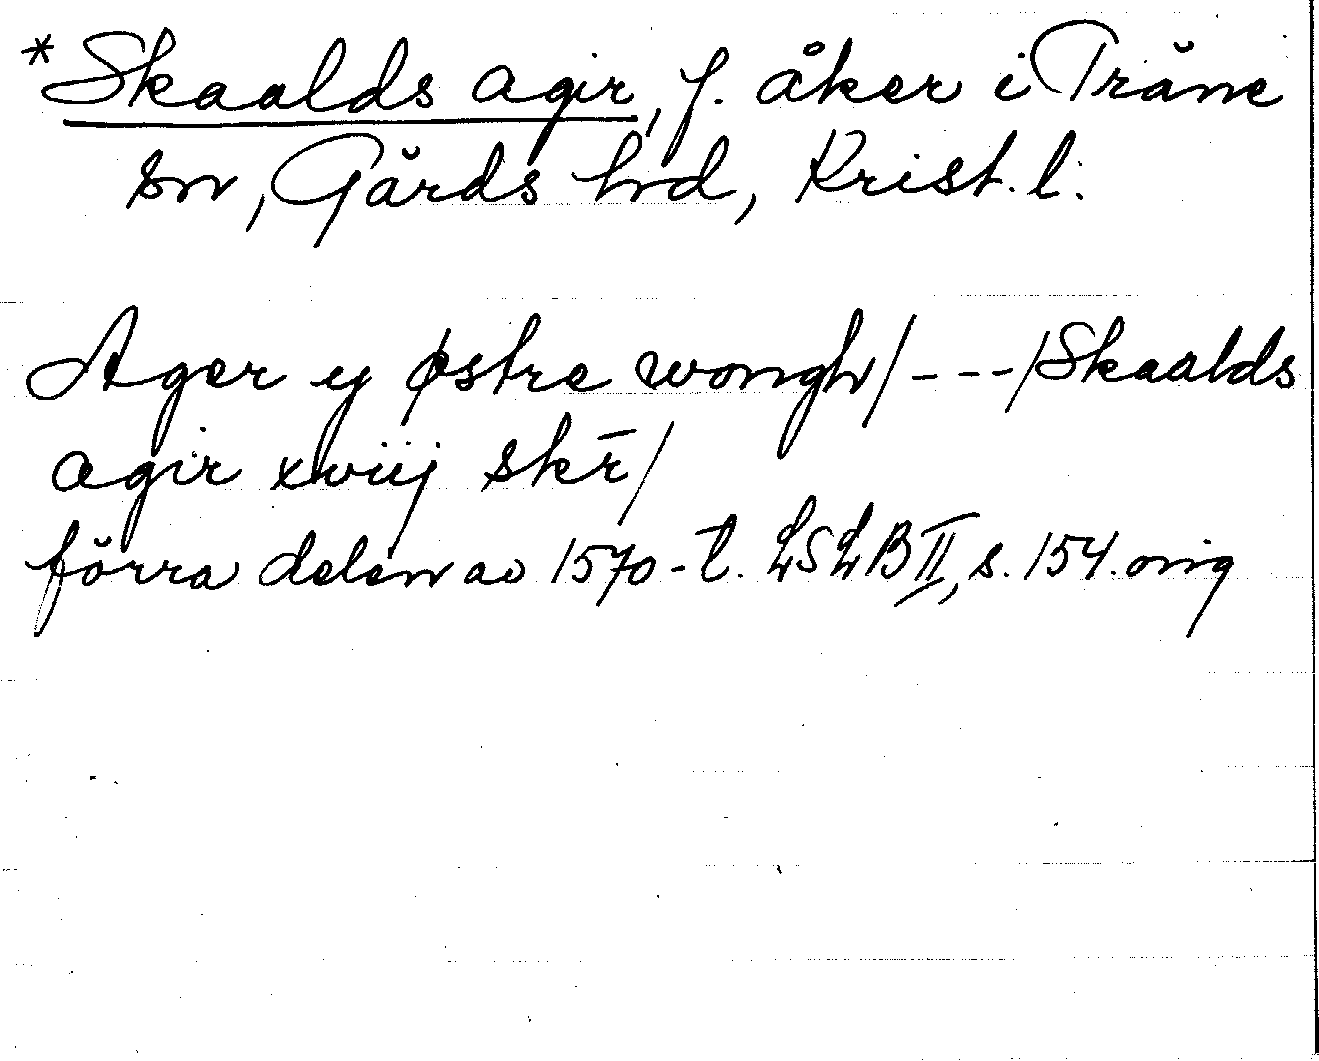 *Skaalds agir, f. åker i Träne
sn, Gärds hd, Krist. l.
Ager y østre wongh/---/Skaalds
agir xviij skr̄/
förra delen av 1570-t. LSLB II, s. 154. orig